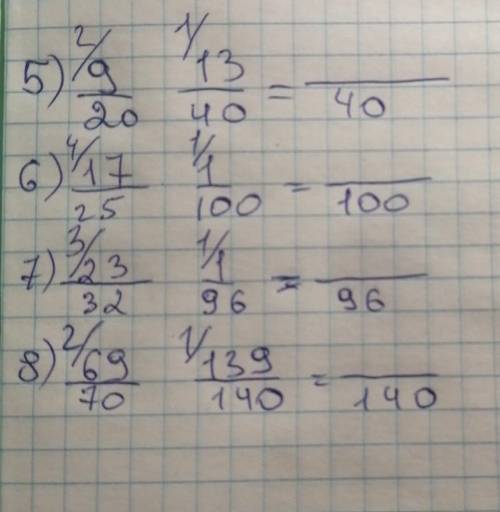 5) 2/ 9/20 1/ 13/40 = /40
6) 4/ 17/25 1/ 1/100 = /100
7) 3/ 23/32 1/ 1/96 = /96
8) 2/ 69/70 1/ 139/140 = /140